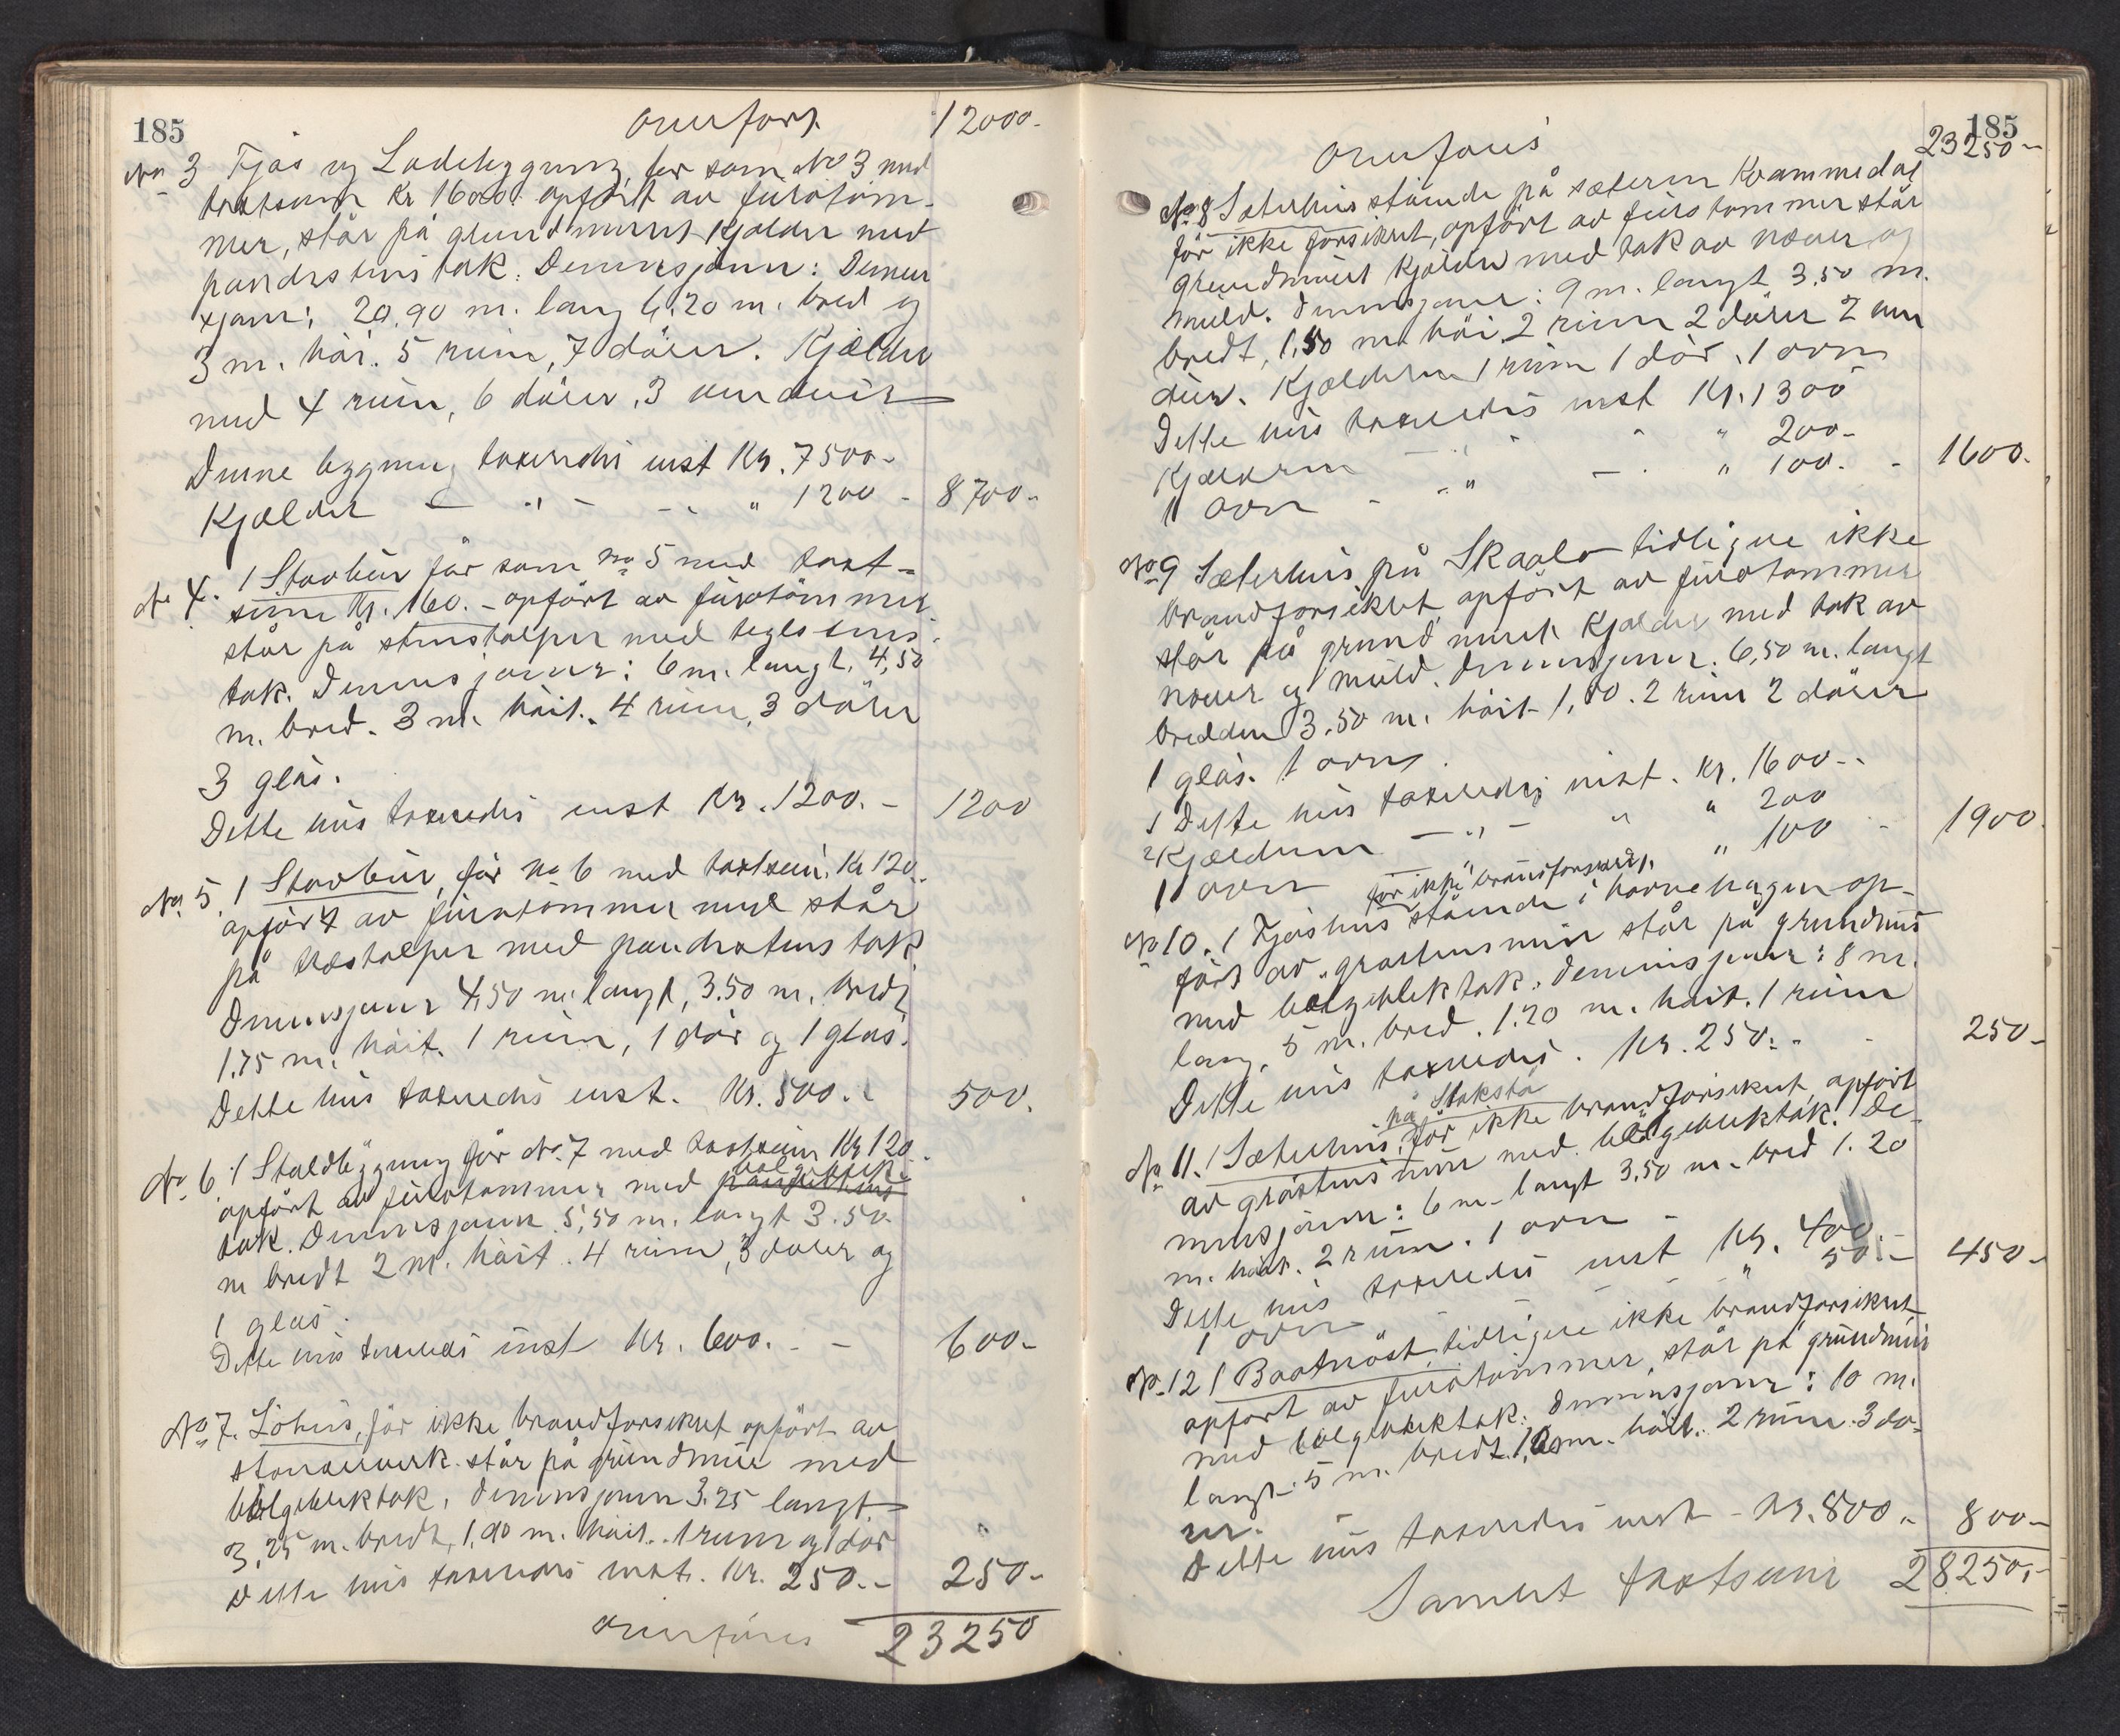 185
Overført 12000.-
No 3 Fjøs og Ladebygning, før som No 3 med
taxtsum Kr 1600. opført av furutöm-
mer, står på grundmuret kjælder med
pandestens tak. Demensjoner: Demen
sjoner: 20.90 m. lang 6.20 m. bred og
3 m. höi. 5 rum, 7 dörer. Kjælder
med 4 rum, 6 dörer, 3 vinduer
Denne bygning taxeredes mst Kr. 7500.-
Kjælder — " — — " 1200 - 8700.-
No 4. 1 Stavbur før som No 5 med taxt-
sum Kr. 160.- opført av furutömmer
står på stenstolper med teglstens
tak. Demensjoner: 6 m. langt. 4,50
m. bred. 3 m. höit. 4 rum, 3 dörer
3 glas.
Dette hus taxeredes mst Kr. 1200.- 1200
No 5. 1 Stavbur, før No 6 med taxtsum Kr 120.
opført av furutömmer med står
på træstolper med pandestens tak
Demensjoner 4,50 m. langt, 3.50 m. bredt
1.75 m. höit. 1 rum, 1 dör og 1 glas.
Dette hus taxeredes mst. Kr. 500.- 500.
No 6. 1 Staldbygning før No 7 med taxtsum Kr 120.
bølgeblik-
opført av furutømmer med pandestens
tak. Demensjoner 5,50 m. langt 3.50
m bredt 2 m. höit. 4 rum, 3 dører og
1 glas.
Dette hus taxeredes mst Kr. 600.- 600.-
No 7. Löhus, før ikke brandforsikret opført av
stenderverk står på grundmur med
bølgeblektak, demensjoner 3.25 langt
3,25 m. bredt, 1,90 m. höit. 1 rum og 1 dör
Dette hus taxeredes mst. Kr. 250.- 250.-
overføres 23250
185
Overføres 23250-
No 8 Sæterhus stående på sæteren Kvammedal
før ikke forsikret, opført av furutømmer står
grundmuret kjælder med tak av næver og
muld. Demensjoner: 9 m. langt 3.50 m.
bredt, 1.50 m höi 2 rum 2 dörer 2 vin
duer. Kjælderen 1 rum 1 dör. 1 ovn
Dette hus taxeredes mst Kr. 1300
Kjælderen — " - - " 200-
1 ovn - " — " 100. - 1600.
No 9 Sæterhus på Skaala tidligere ikke
brandforsikret, opført av furutømmer
står på grundmuret kjælder med tak av
næver og muld. Demensjoner. 6,50 m. langt
bredden 3.50 m. höit 1,80. 2 rum 2 dörer
1 glas. 1 ovn.
1 Dette hus taxeredes mst. Kr. 1600.-
2 Kjælderen — " — " " 200
1 ovn " 100 - 1900.
før ikke brandforsikret.
No 10. 1 Fjøshus stående i havnehagen op-
ført av gråstensmur står på grundmur
med bølgeblektak. Demensjoner: 8 m.
lang, 5 m. bred. 1.20 m. höit. 1 rum
Dette hus taxeredes. Kr. 250.- 250-
på Stakstø
No 11. 1 Sæterhus, før ikke brandforsikret, opført
av gråstensmur med bølgeblektak. De-
mensjoner: 6 m. langt 3,50 m. bred 1.20
m. höit. 2 rum. 1 ovn -
Dette hus taxeredes mst Kr. 400.
1 ovn " 50.- 450-
No 12 1 Baatnöst, tidligere ikke brandforsikret
opført av furutömmer, står på grundmur
med bølgeblektak. Demensjoner: 10 m.
langt. 5 m. bredt höit. 2 rum. 3 dö-
rer.
Dette hus taxeredes mst - Kr. 800.- 800-
Samlet taxtsum 28250,-